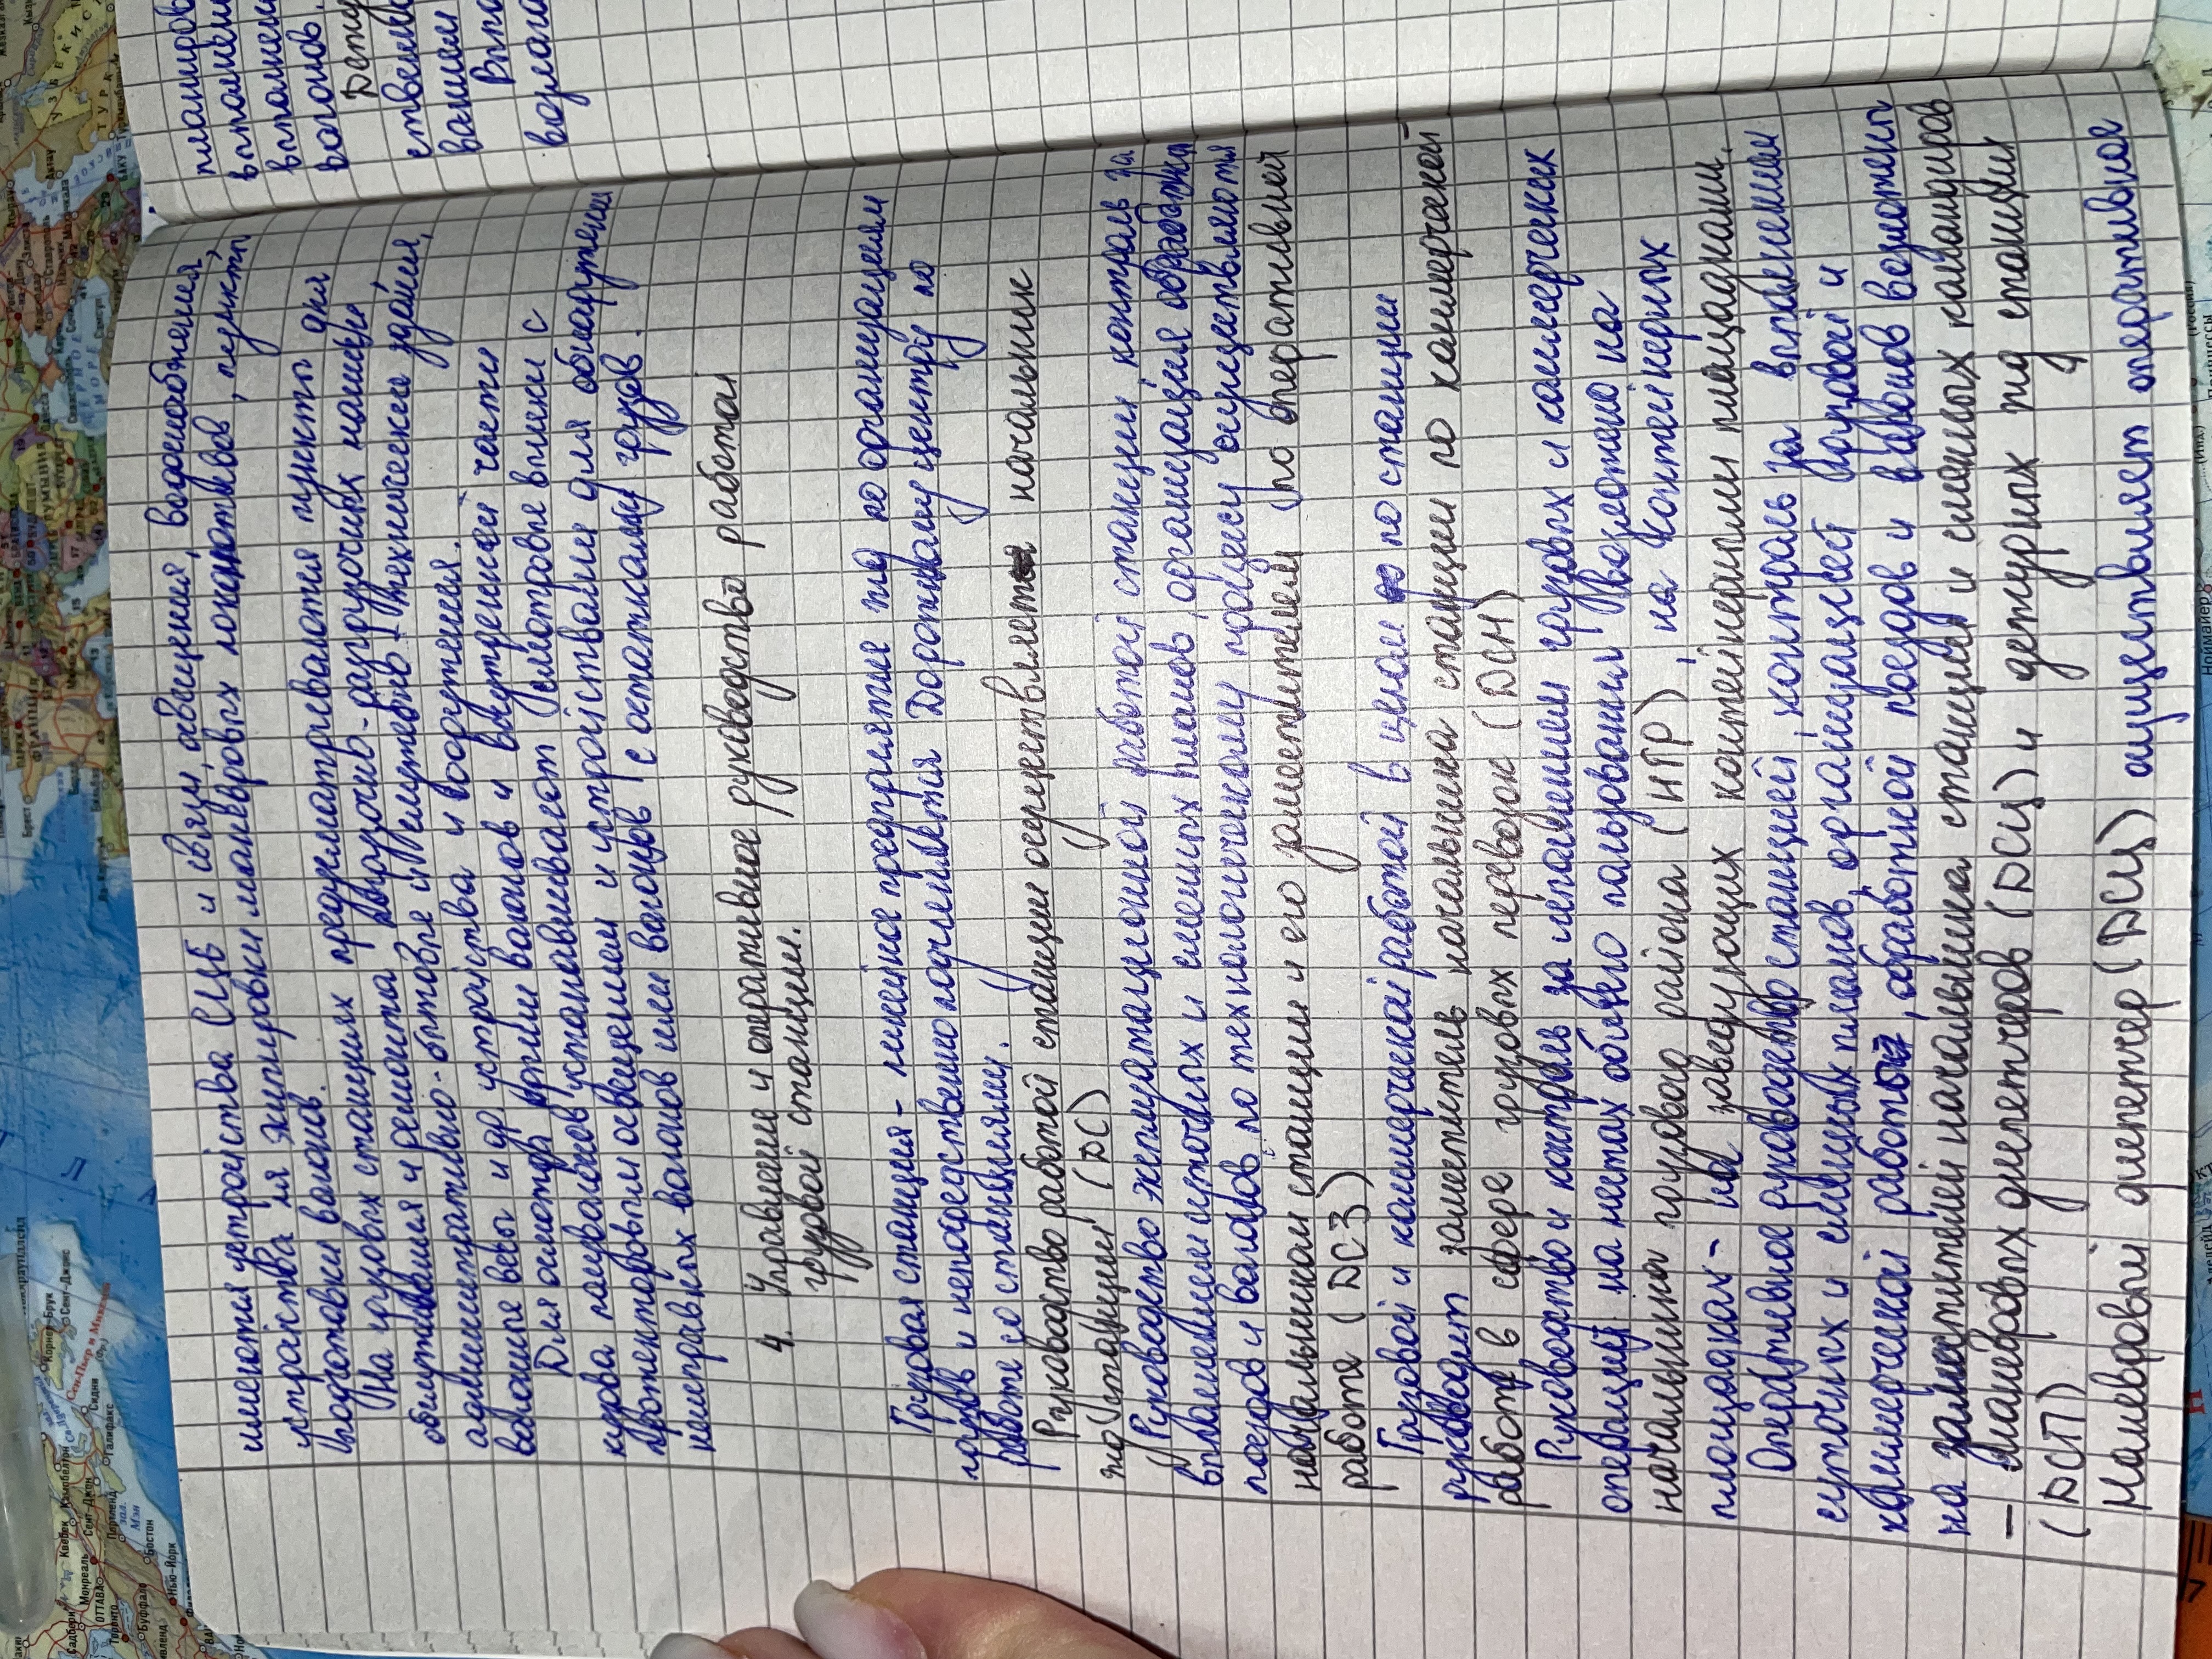 имеются устройства СЦБ и связи, освещения, водоснабжения,
устройства для экипировки маневровых локомотивов, пункты
подготовки вагонов.
На грузовых станциях предусматриваются пункты для
обслуживания и ремонта погрузочно-разгрузочных машин,
административно-бытовые и служебно-технические здания,
вагонные весы и др. устройства и сооружения.
Для осмотра крыш вагонов и внутренней части
кузова полувагонов устанавливают смотровые вышки с
прожекторовым освещением и устройствами для обнаружения
неисправных вагонов или вагонов с остатками грузов.
4. Управление и оперативное руководство работой
грузовой станции.
Грузовая станция - линейное предприятие жд по организации
грузов и непосредственно подчиняется Дорожному центру по
работе со станциями.
Руководство работой станции осуществляет начальник
по станции (ДС)
Руководство эксплуатационной работой станции, контроль за
выполнением суточных и сменных планов, организация обработки
поездов и вагонов по технологическому процессу осуществляются
начальником станции и его заместителем по оперативной
работе (ДСЗ)
Грузовой и коммерческой работой в целом по станции
руководит заместитель начальника станции по коммерческой
работе в сфере грузовых перевозок (ДСМ)
Руководство и контроль за исполнением грузовых и коммерческих
операций на местах общего пользования возложено на
начальника грузового района (НГР), на контейнерных
площадках - на заведующих контейнерными площадками.
Оперативное руководство станцией, контроль за выполнением
суточных и сменных планов, организацией грузовой и
коммерческой работы, обработкой поездов и вагонов возложены
на заместителей начальника станции и сменных командиров
– маневровых диспетчеров (ДСЦ) и дежурных по станции
(ДСП)
Маневровый диспетчер (ДСЦ) осуществляет оперативное